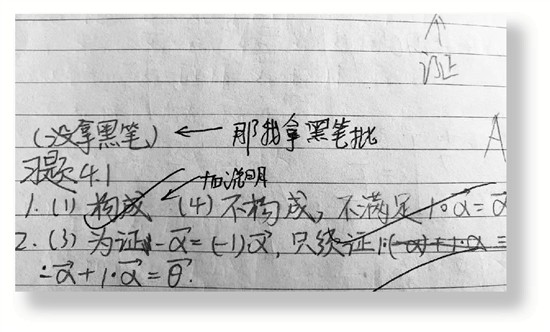 证
(没拿黑笔) ← 那我拿黑笔批
习题4.1 A
加说明
1. (1) 构成 (4) 不构成, 不满足 1·α⃗=α⃗
2. (3) 为证 -α⃗=(-1)α⃗, 只须证
-α⃗+1·α⃗=θ⃗.